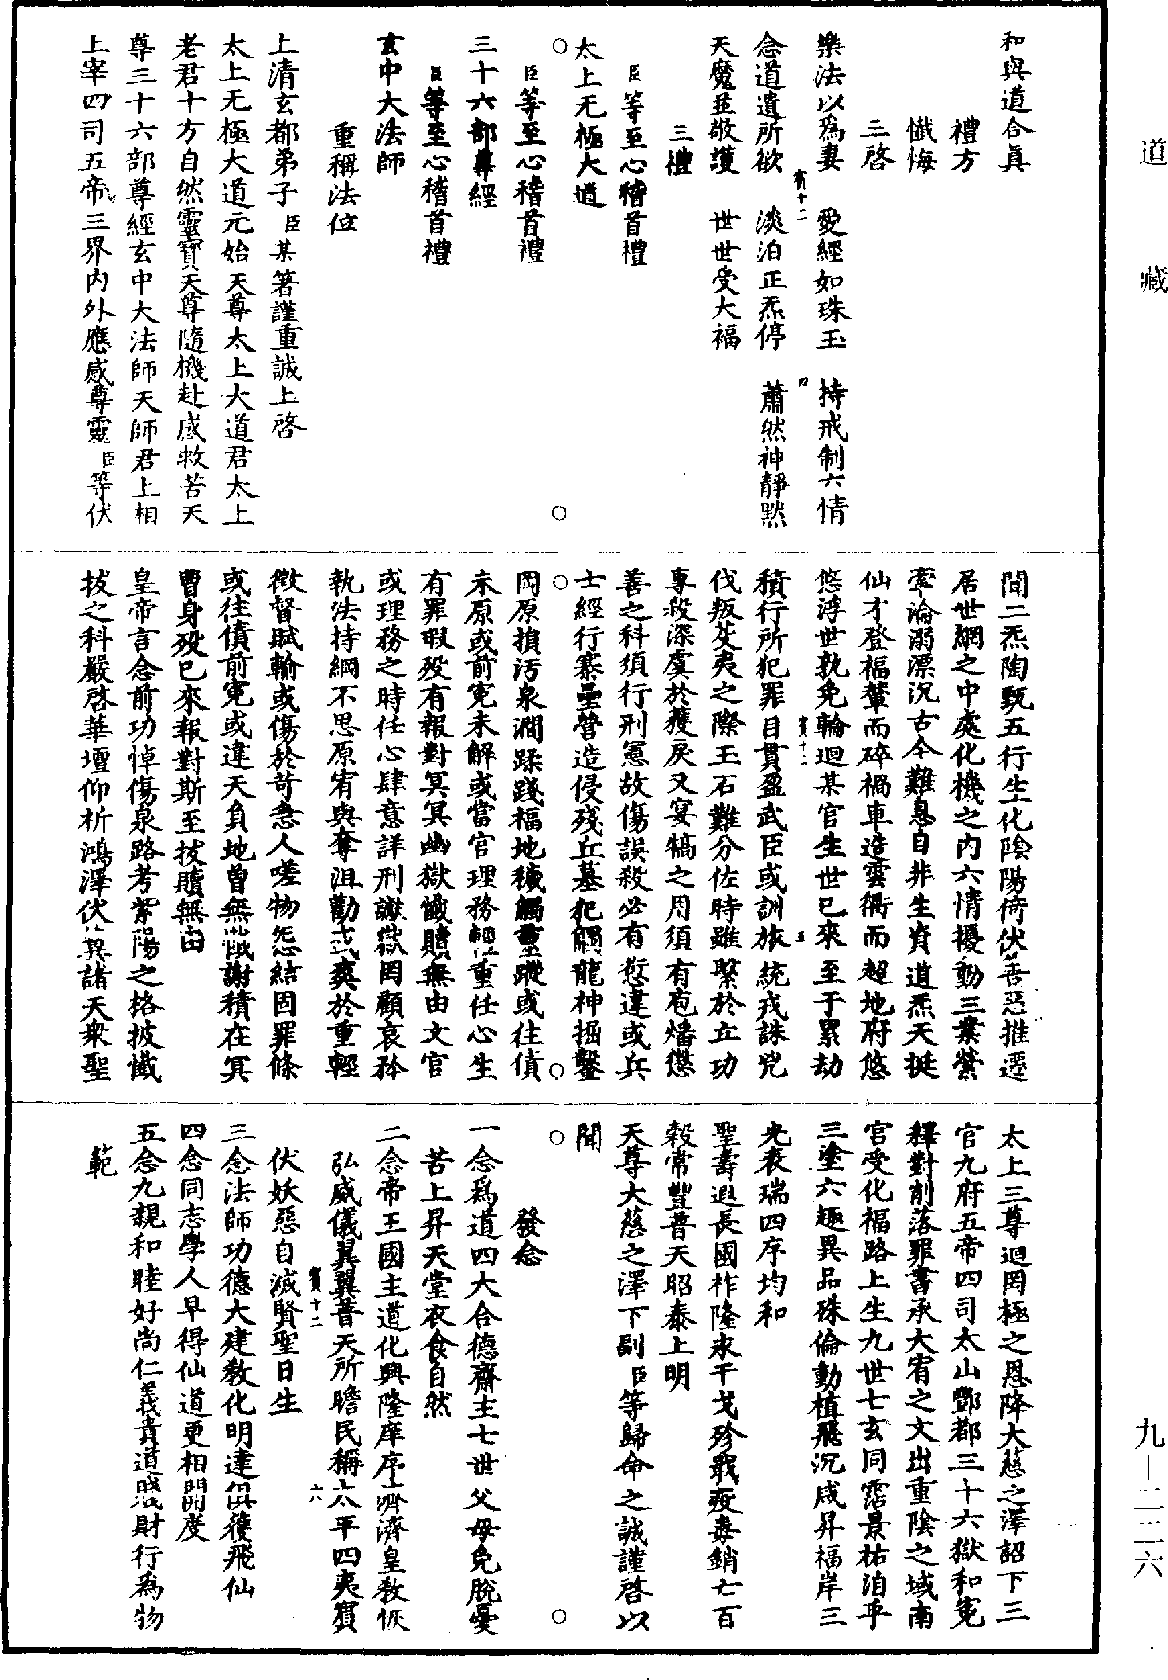 道藏
和與道合眞
禮方
懺悔
三啓
樂法以爲妻　愛經如珠玉　持戒制六情
念道遣所欲　淡泊正炁停　蕭然神靜默
天魔並敬護　世世受大福
三禮
臣等至心稽首禮
太上无極大道
臣等至心稽首禮
三十六部尊經
臣等至心稽首禮
玄中大法師
重稱法位
上清玄都弟子臣某等謹重誠上啓
太上无極大道元始天尊太上大道君太上
老君十方自然靈寶天尊隨機赴感救苦天
尊三十六部尊經玄中大法師天師君上相
上宰四司五帝三界內外應感尊靈臣等伏
聞二炁陶甄五行生化陰陽倚伏善惡推遷
居世網之中處化機之內六情擾動三業縈
牽淪溺漂沉古今難息自非生資道炁天挺
仙才登福輦而碎禍車造雲衢而超地府悠
悠浮世孰免輪迴某官生世已來至于累劫
積行所犯罪目貫盈武臣或訓旅統戎誅兇
伐叛芟夷之際玉石難分佐時雖繫於立功
專殺深虞於獲戾又宴犒之用須有庖燔懲
善之科須行刑憲故傷誤殺必有愆違或兵
士經行寨壘營造侵殘丘墓犯觸龍神掘鑿
岡原損污泉澗蹂踐福地穢觸靈蹤或往債
未原或前冤未解或當官理務輕重任心生
有罪瑕歿有報對冥冥幽獄懺贖無由文官
或理務之時任心肆意詳刑讞獄罔顧哀矜
執法持綱不思原宥與奪沮勸或爽於重輕
徵督賦輸或傷於苛急人嗟物怨結因罪條
或往債前冤或違天負地曾無懺謝積在冥
曹身歿已來報對斯至拔贖無由
皇帝言念前功悼傷泉路考紫陽之格披懺
拔之科嚴啓華壇仰祈鴻澤伏冀諸天衆聖
太上三尊迴罔極之恩降大慈之澤詔下三
官九府五帝四司太山酆都三十六獄和冤
釋對削落罪書承大宥之文出重陰之域南
宮受化福路上生九世七玄同霑景祐洎乎
三塗六趣異品殊倫動植飛沉咸昇福岸三
光表瑞四序均和
聖壽遐長國祚隆永干戈殄戢疫毒銷亡百
穀常豐普天昭泰上明
天尊大慈之澤下副臣等歸命之誠謹啓以
聞
發念
一念爲道四大合德齋主七世父母免脫憂
苦上昇天堂衣食自然
二念帝王國主道化興隆庠序濟濟皇教恢
弘威儀翼翼普天所瞻民稱太平四夷賓
伏妖惡自滅賢聖日生
三念法師功德大建教化明達俱獲飛仙
四念同志學人早得仙道更相開度
五念九親和睦好尚仁義貴道賤財行爲物
範
九—二二六